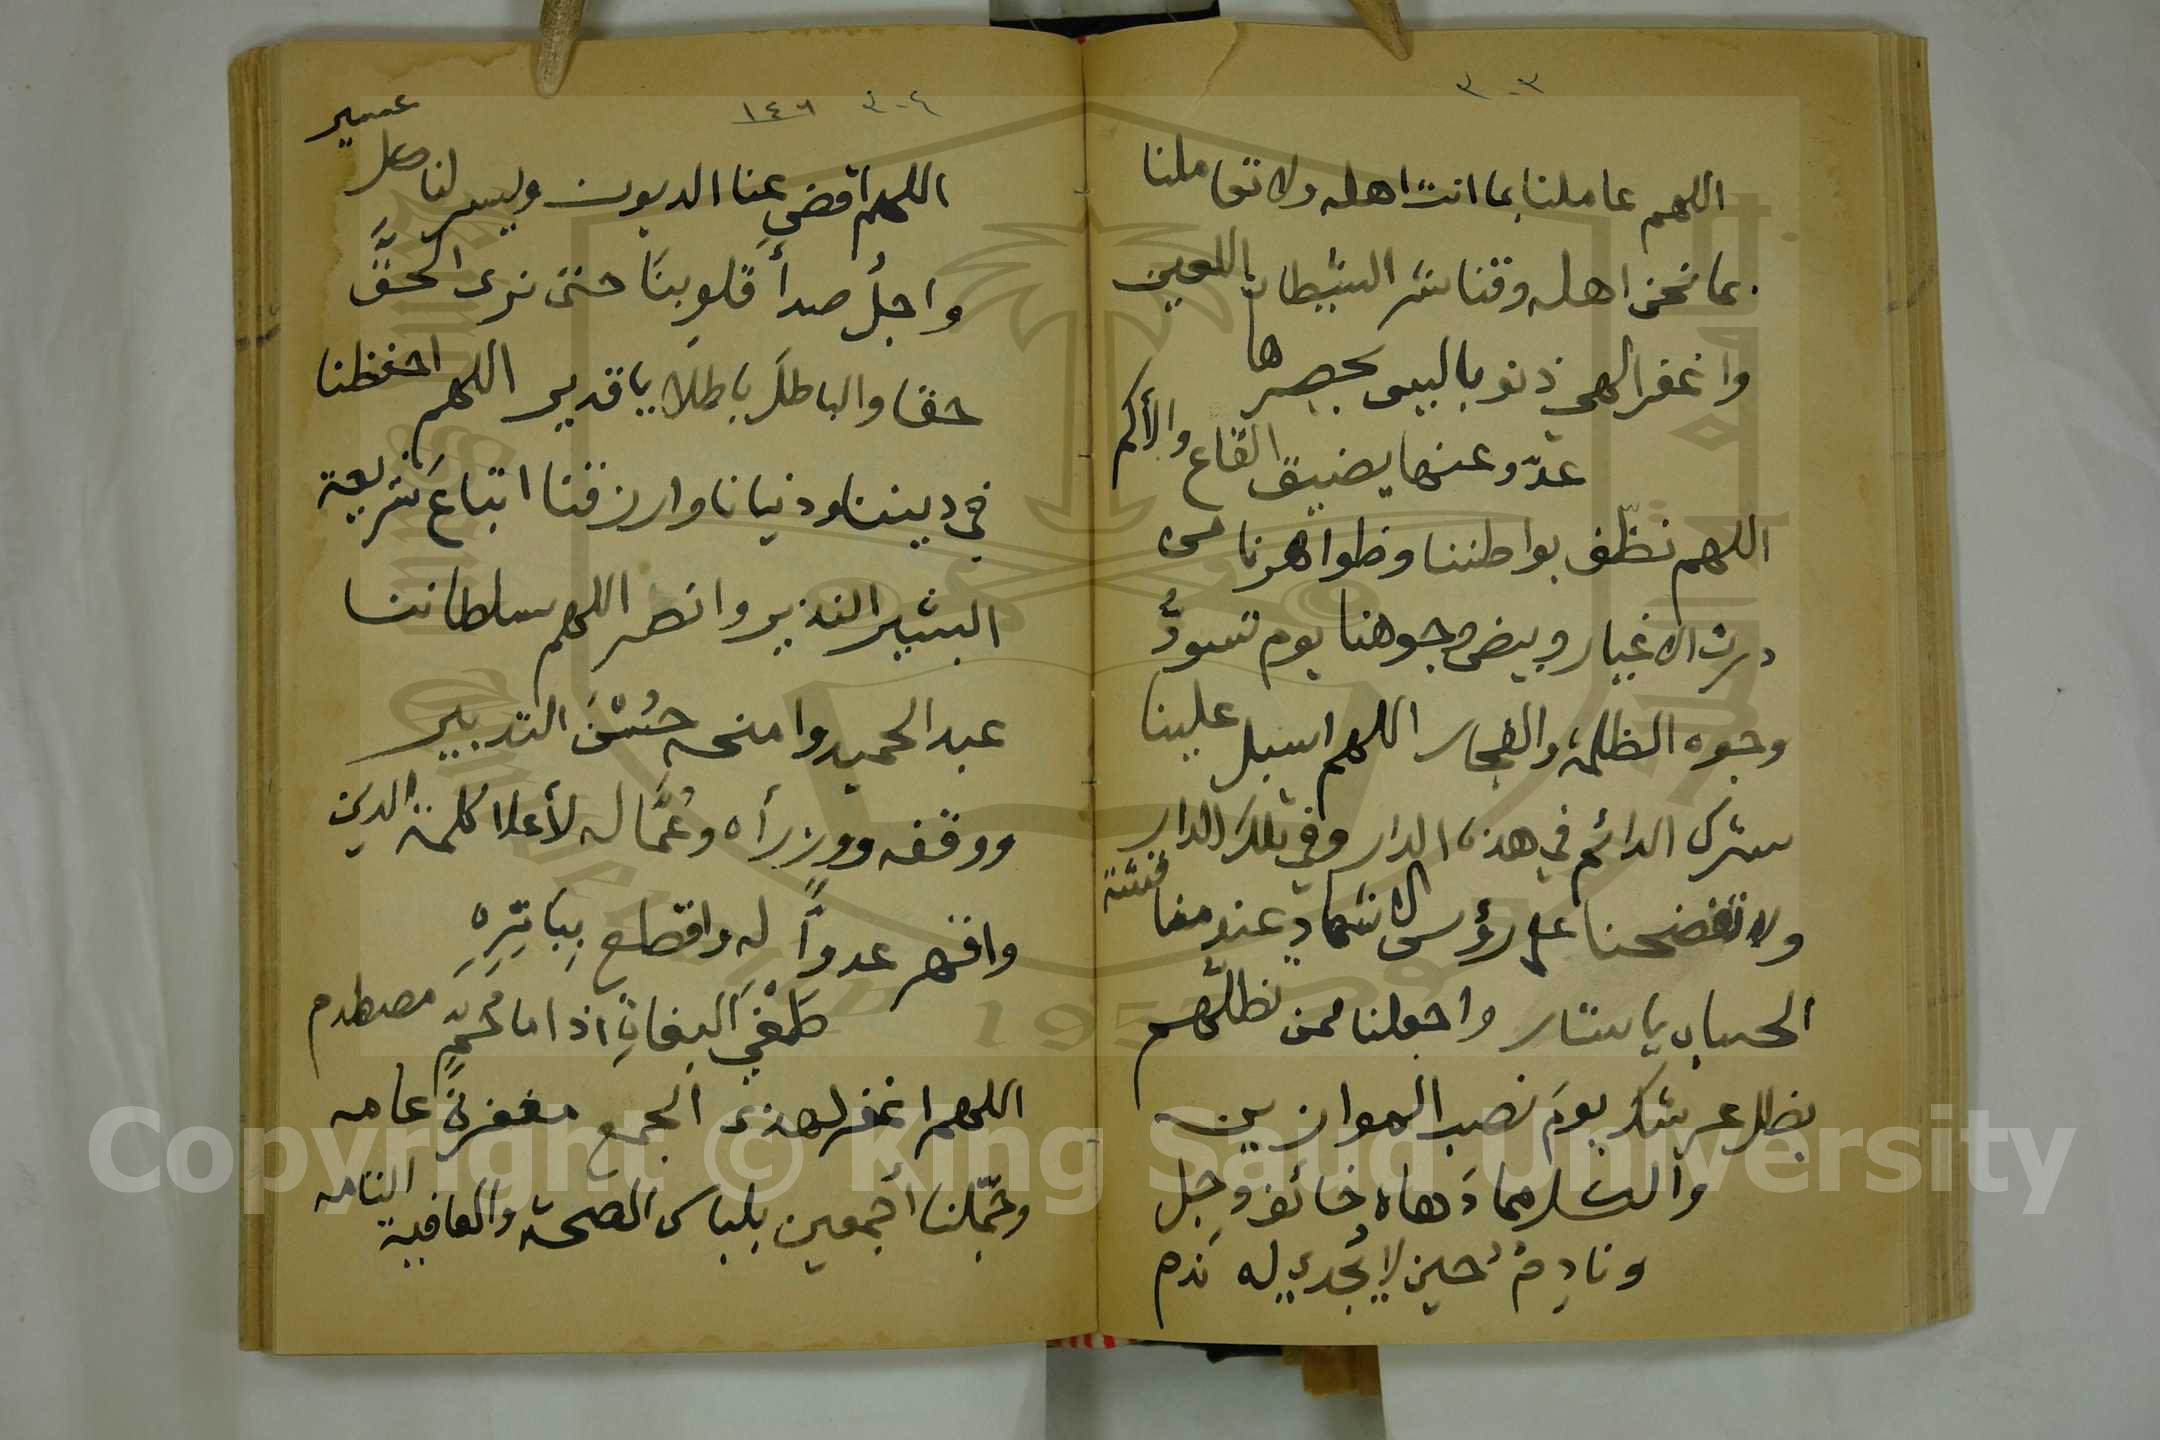 ٣٠٣
اللهم عاملنا بما انت اهله ولا تعاملنا
بما نحن اهله وقنا شر الشيطان اللعين
واغفر الهي ذنوبا ليس يحصرها
عدّ وعنها يضيق القاع والأكم
اللهم نظّف بواطننا وظواهرنا من
درن الاغيار وبيض وجوهنا يوم تسودُّ
وجوه الظلمة والفجار اللهم اسبل علينا
سترك الدائم في هذه الدار وفي تلك الدار
ولا تفضحنا على رؤس الاشهاد عند مناقشة
الحساب يا ستار واجعلنا ممن تظلّهم
بظل عرشك يوم نصب الموازين
والكل مما دهاه خائف وجل
ونادمٌ حين لا يُجدي له ندم
٣٠٤ ١٤٦
اللهم اقضِ عنا الديون ويسر لنا كل عسير
واجلُ صدأ قلوبنا حتى نرى الحقَّ
حقا والباطل باطلا يا قدير اللهم احفظنا
في ديننا ودنيانا وارزقنا اتباع شريعة
البشير النذير وانصر اللهم سلطاننا
عبد الحميد وامنحه حُسْنَ التدبير
ووقفه ووزرأه وعُمَّاله لأعلا كلمة الدين
واقهر عدوّاً له واقطع بِبَاتِرِهِ
طَغْيَ البغاةِ اذا ما مصطدم
اللهم اغفر لهذا الجمع مغفرةً عامه
وجمّلنا أجمعين بلباس الصحة والعافية التامه
Copyright © King Saud University